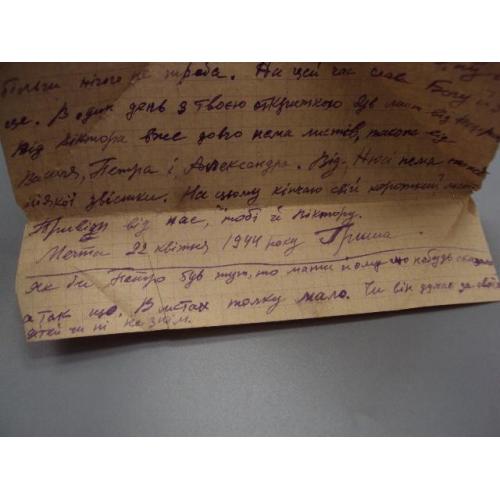 більш нічого не треба. На цей час слава Богу й
ще. В один день з твоєю открыткою був лист від
від Віктора вже довго нема листів, також від
Василя, Петра і Александра. Від Нюсі нема
ніякої звістки. На цьому кінчаю свій короткий лист
Привіт від нас, тобі й Віктору.
22 квітня 1944 року Гриша.
Як би Петро був тут, то мати йому що небудь сказала
а так що. В листах толку мало. Чи він думає за своїх
дітей чи ні не знаєм.